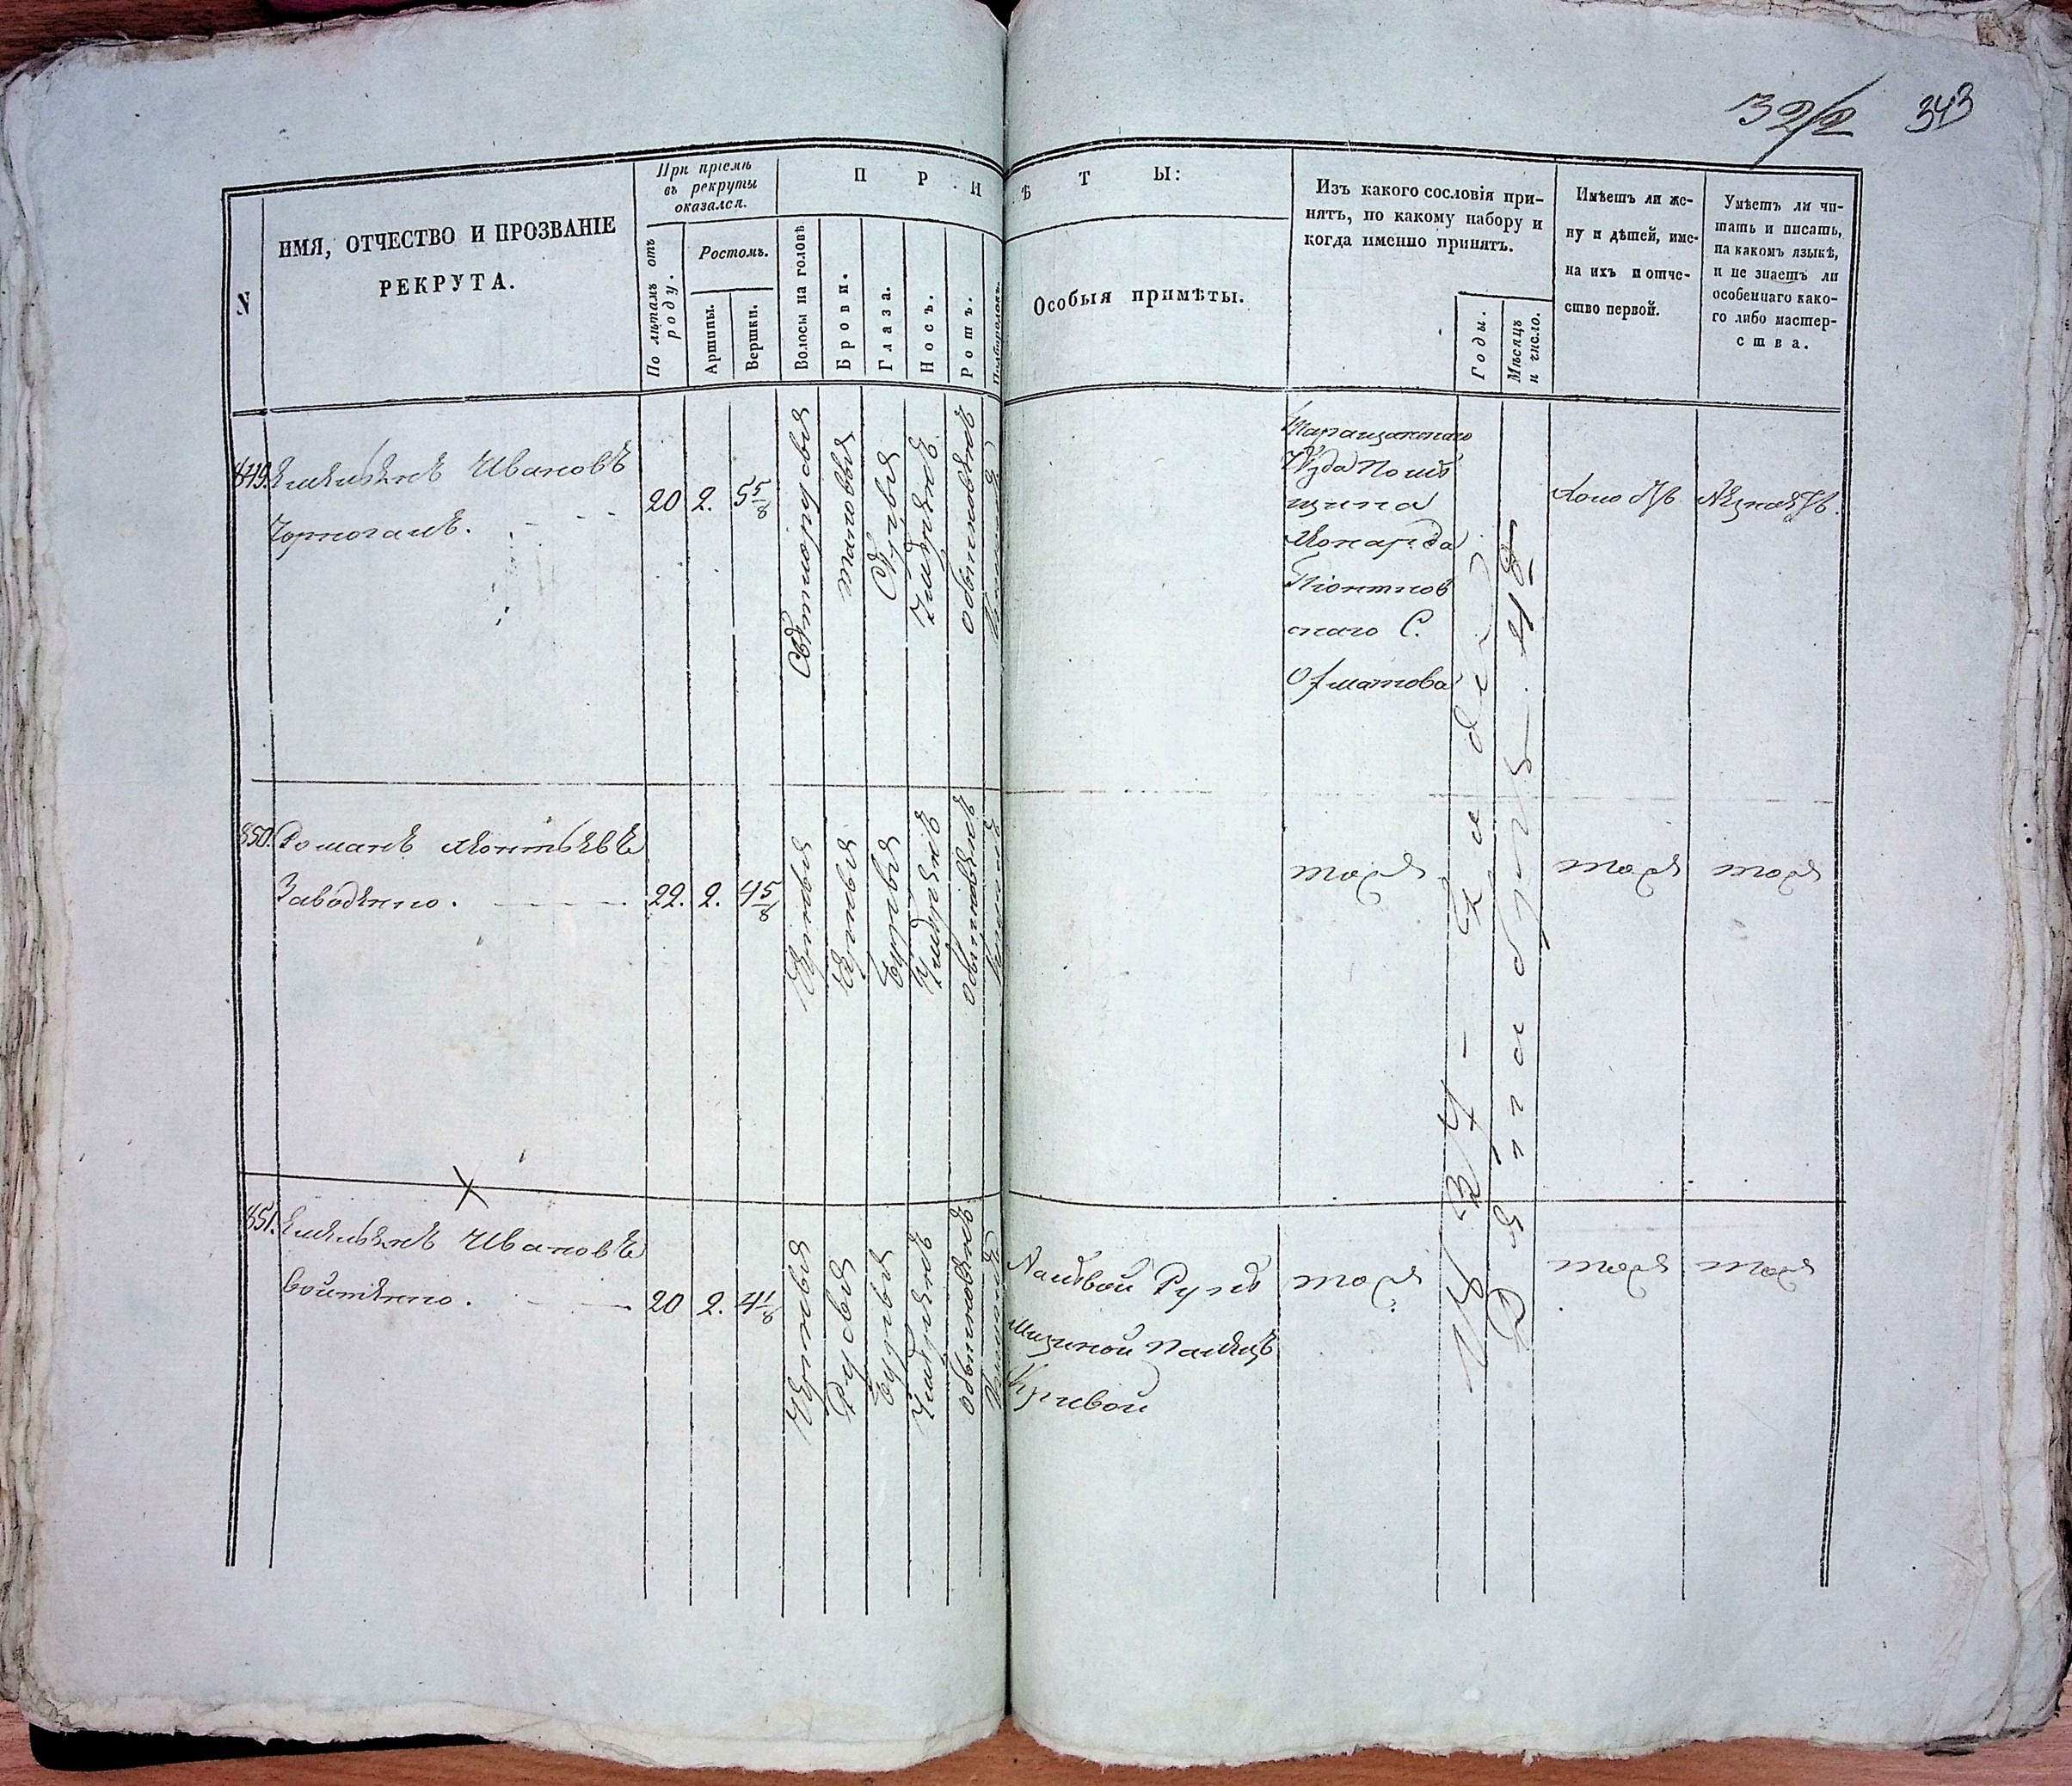 343
N
ИМЯ, ОТЧЕСТВО И ПРОЗВАНІЕ
РЕКРУТА.
При пріемѣ
въ рекруты
оказался.
По лѣтамъ отъ
роду.
Ростомъ.
Аршины.
Вершки.
П Р И
Волосы на головѣ
Брови.
Глаза.
Носъ.
Ротъ.
Подбородокъ.
Ѣ Т Ы:
Особыя примѣты.
Изъ какого сословія при-
нятъ, по какому набору и
когда именно принятъ.
Годы.
Мѣсяцъ
и число.
Имѣетъ ли же-
ну и дѣтей, име-
на ихъ и отче-
ство первой.
Умѣетъ ли чи-
тать и писать,
на какомъ языкѣ,
и не знаетъ ли
особеннаго како-
го либо мастер-
ства.
849. Емельянъ Ивановъ
Чорногалъ.
20 2. 5 5/8
Свѣтлорусыя
таковыя
Сѣрыя
Умѣренъ
обыкновенъ
Таращанскаго
Уѣзда Помѣ
щика
Леонарда
Піонтков
скаго С.
Охматова
Холостъ
Незнаетъ.
850. Романъ Леонтьевъ
Заводенко.
22. 2. 4 5/8
Черныя
Черныя
Бурыя
Умѣренъ
обыкновенъ
тоже
тоже
тоже
851. Емельянъ Ивановъ
Войтенко.
20 2. 4 1/8
Черныя
Русыя
Бурыя
Умѣренъ
обыкновенъ
На лѣвой Рукѣ
Мизиной Палецъ
Кривой
тоже
тоже
тоже
1834 - Года
Декабря 18